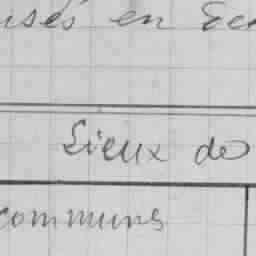 isés en Ec
Lieux de
communs